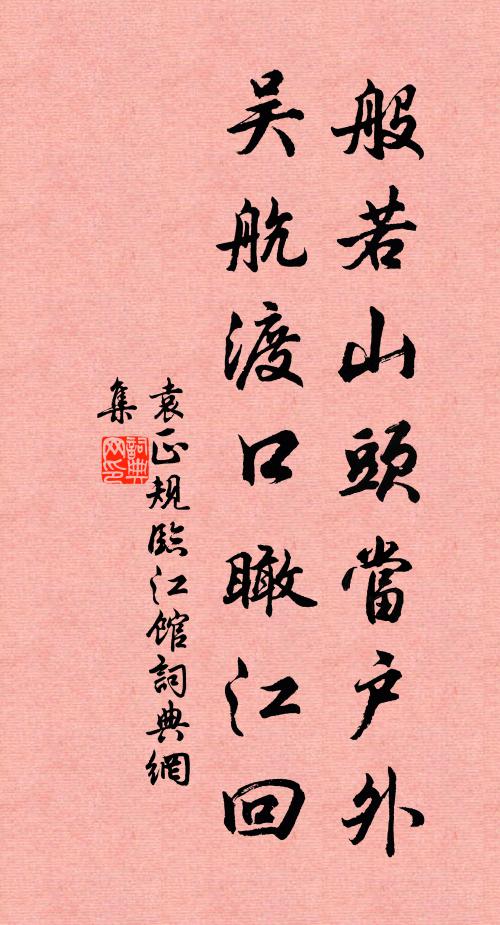 般若山頭當戶外
吴航渡口瞰江回
袁正規臨江館詞典網
集
詞典网印